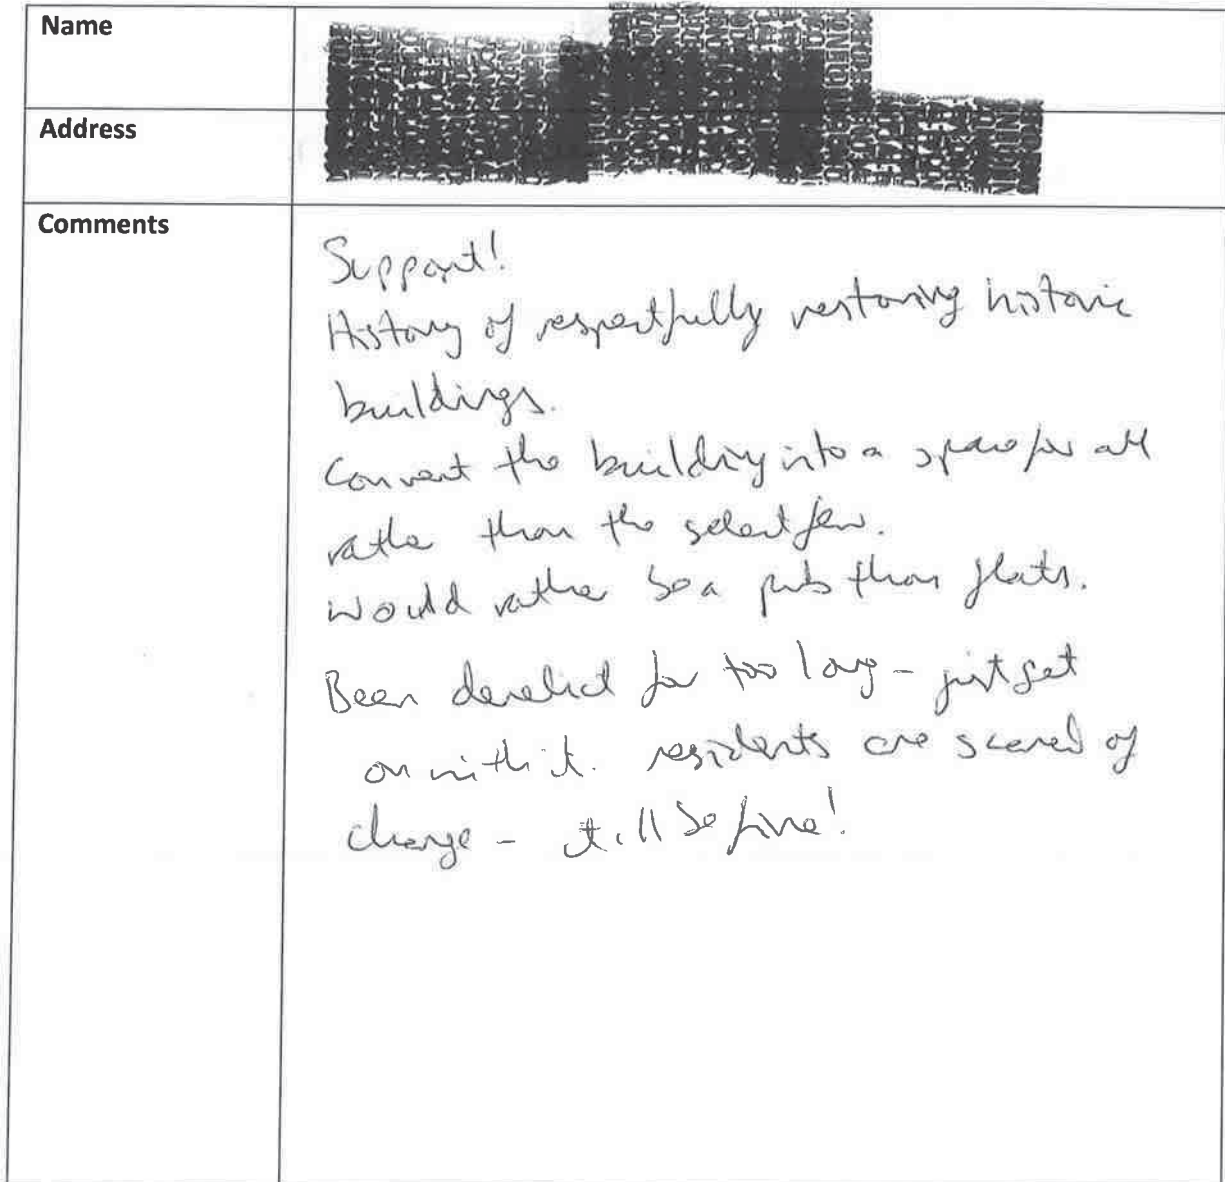 Name
Address
Comments
Support!
History of respectfully restoring historic
buildings.
Convert the building into a space for all
rather than the select few.
would rather be a pub than flats.
Been derelict for too long - just get
on with it. residents are scared of
change - it'll be fine!